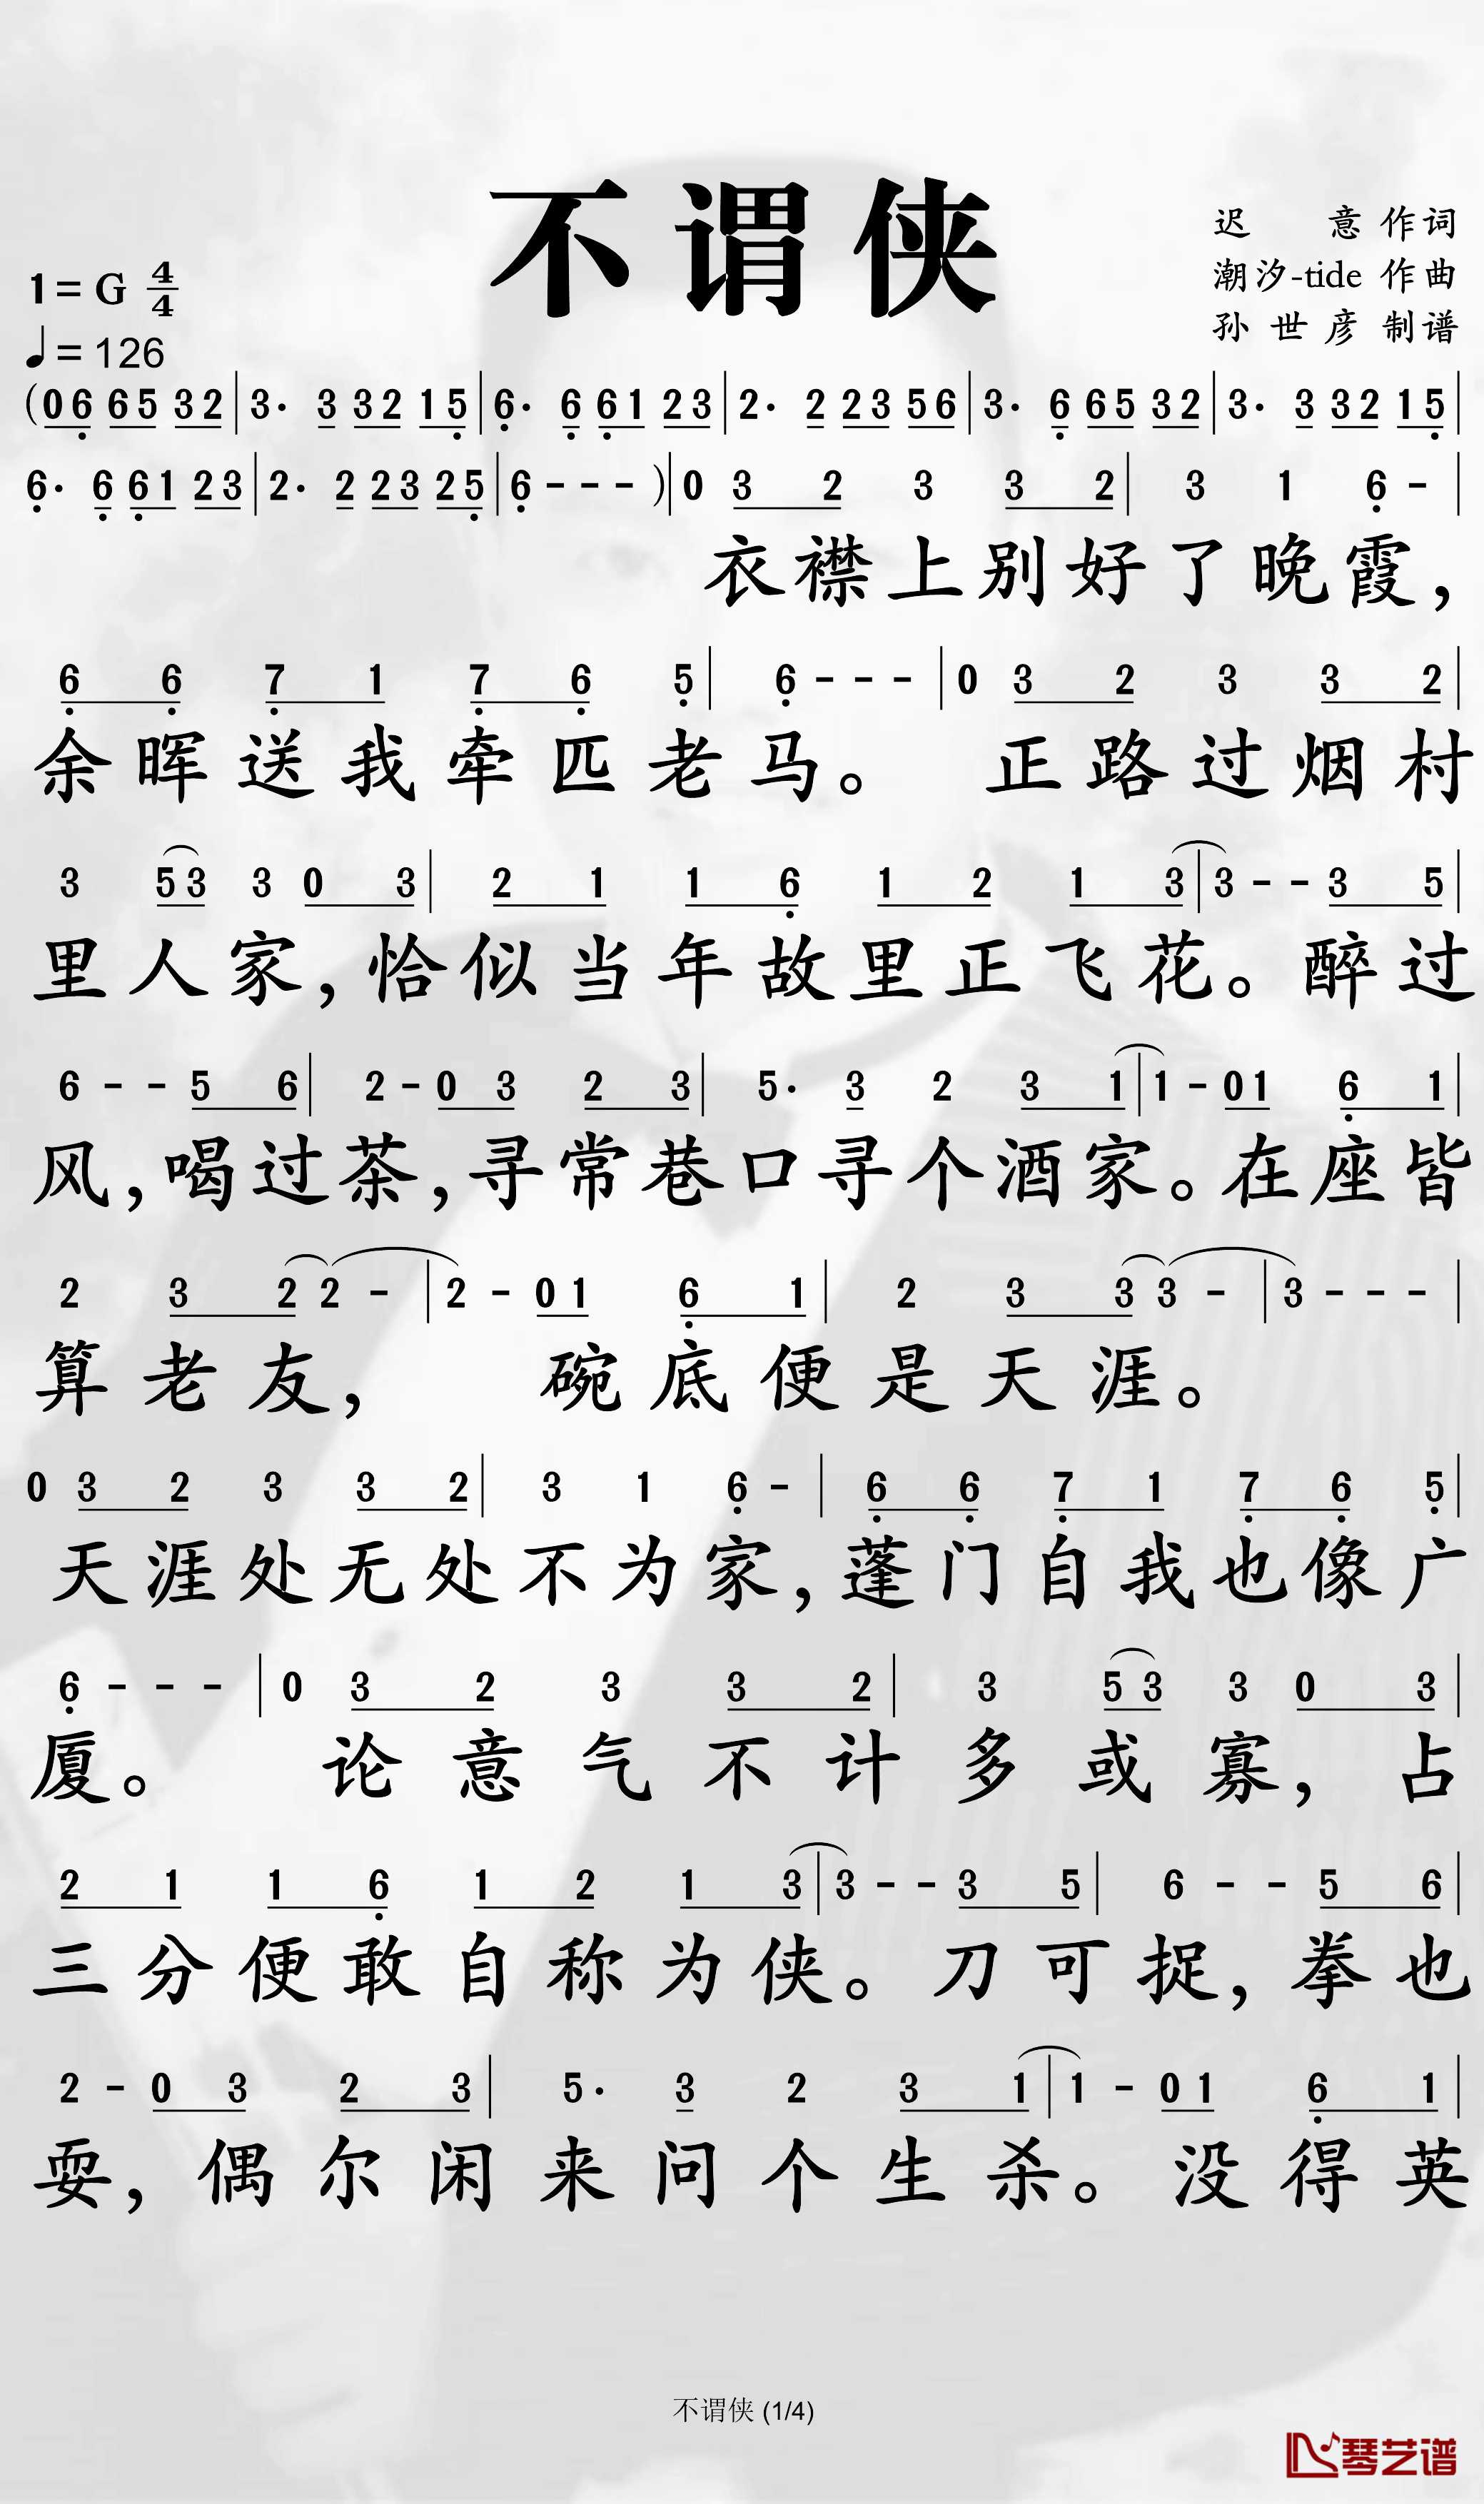 不谓侠
迟 意 作词
潮汐-tide 作曲
孙世彦 制谱
1=G 4/4
♩=126
(06 65 32|3· 3 32 15|6· 6 61 23|2· 2 23 56|3· 6 65 32|3· 3 32 15|
6· 6 61 23|2· 2 23 25|6---)|0 3 2 3 3 2|3 1 6-|
衣襟上别好了晚霞,
6 6 7 1 7 6 5|6---|0 3 2 3 3 2|
余晖送我牵匹老马。 正路过烟村
3 53 3 0 3|2 1 1 6 1 2 1 3|3--3 5|
里人家,恰似当年故里正飞花。醉过
6--5 6|2-0 3 2 3|5· 3 2 3 1|1-01 6 1|
风,喝过茶,寻常巷口寻个酒家。在座皆
2 3 2 2 -|2 - 01 6 1|2 3 3 3 -|3---|
算老友, 碗底便是天涯。
0 3 2 3 3 2|3 1 6-|6 6 7 1 7 6 5|
天涯处无处不为家,蓬门自我也像广
6---|0 3 2 3 3 2|3 53 3 0 3|
厦。 论意气不计多或寡,占
2 1 1 6 1 2 1 3|3--3 5|6--5 6|
三分便敢自称为侠。刀可捉,拳也
2-0 3 2 3|5· 3 2 3 1|1-01 6 1|
耍,偶尔闲来问个生杀。没得英
不谓侠 (1/4)
琴艺谱